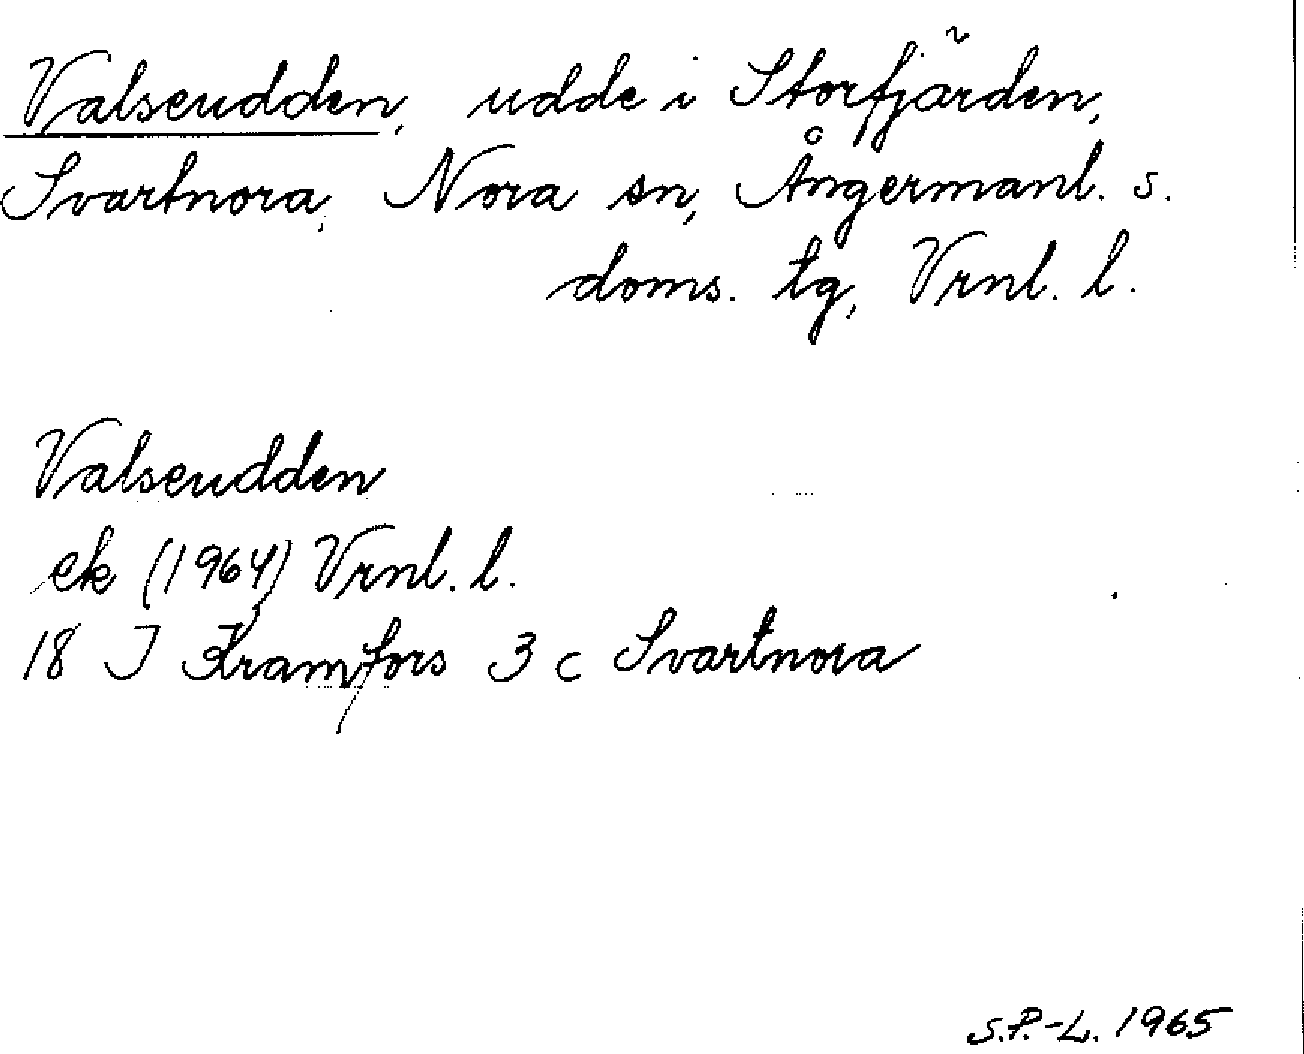 Valseudden, udde i Storfjärden,
Svartnora, Nora sn, Ångermanl. s.
doms. tg, Vrnl. l.
Valseudden
ek (1964) Vrnl. l.
18 J Kramfors 3 c Svartnora
S.P.-L. 1965